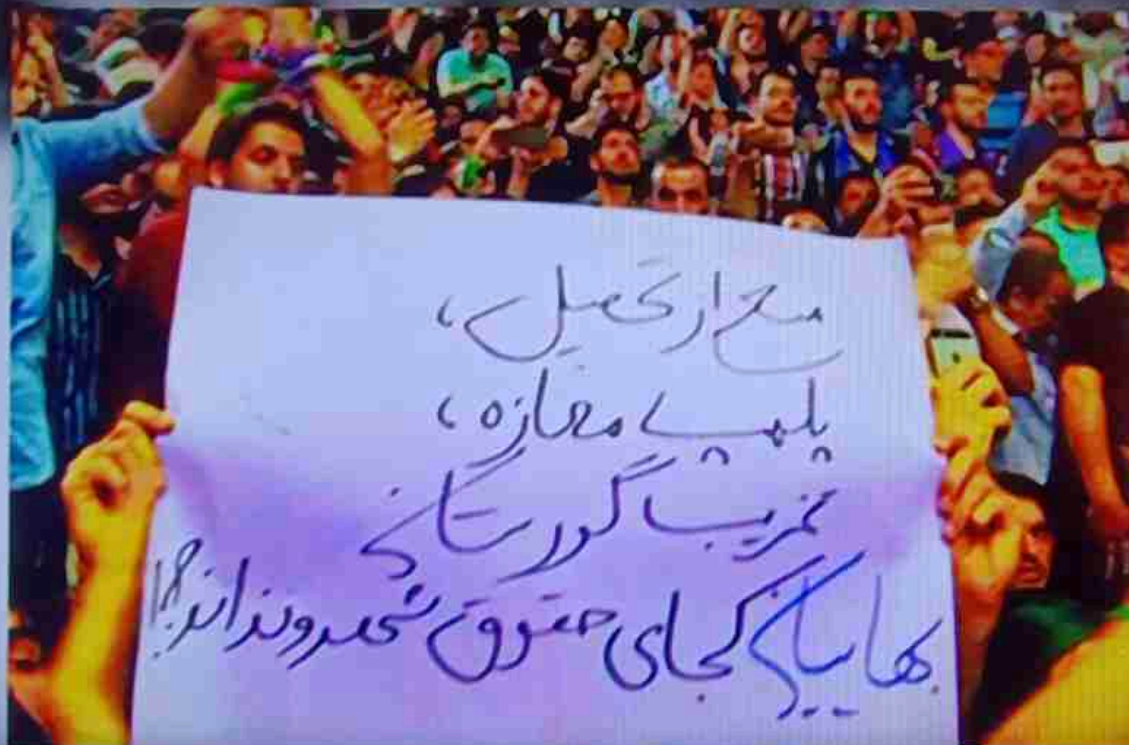 منع از تحصیل،
پلمپ مغازه،
تخریب گورستان
بهاییان کجای حقوق شهرونداند؟!